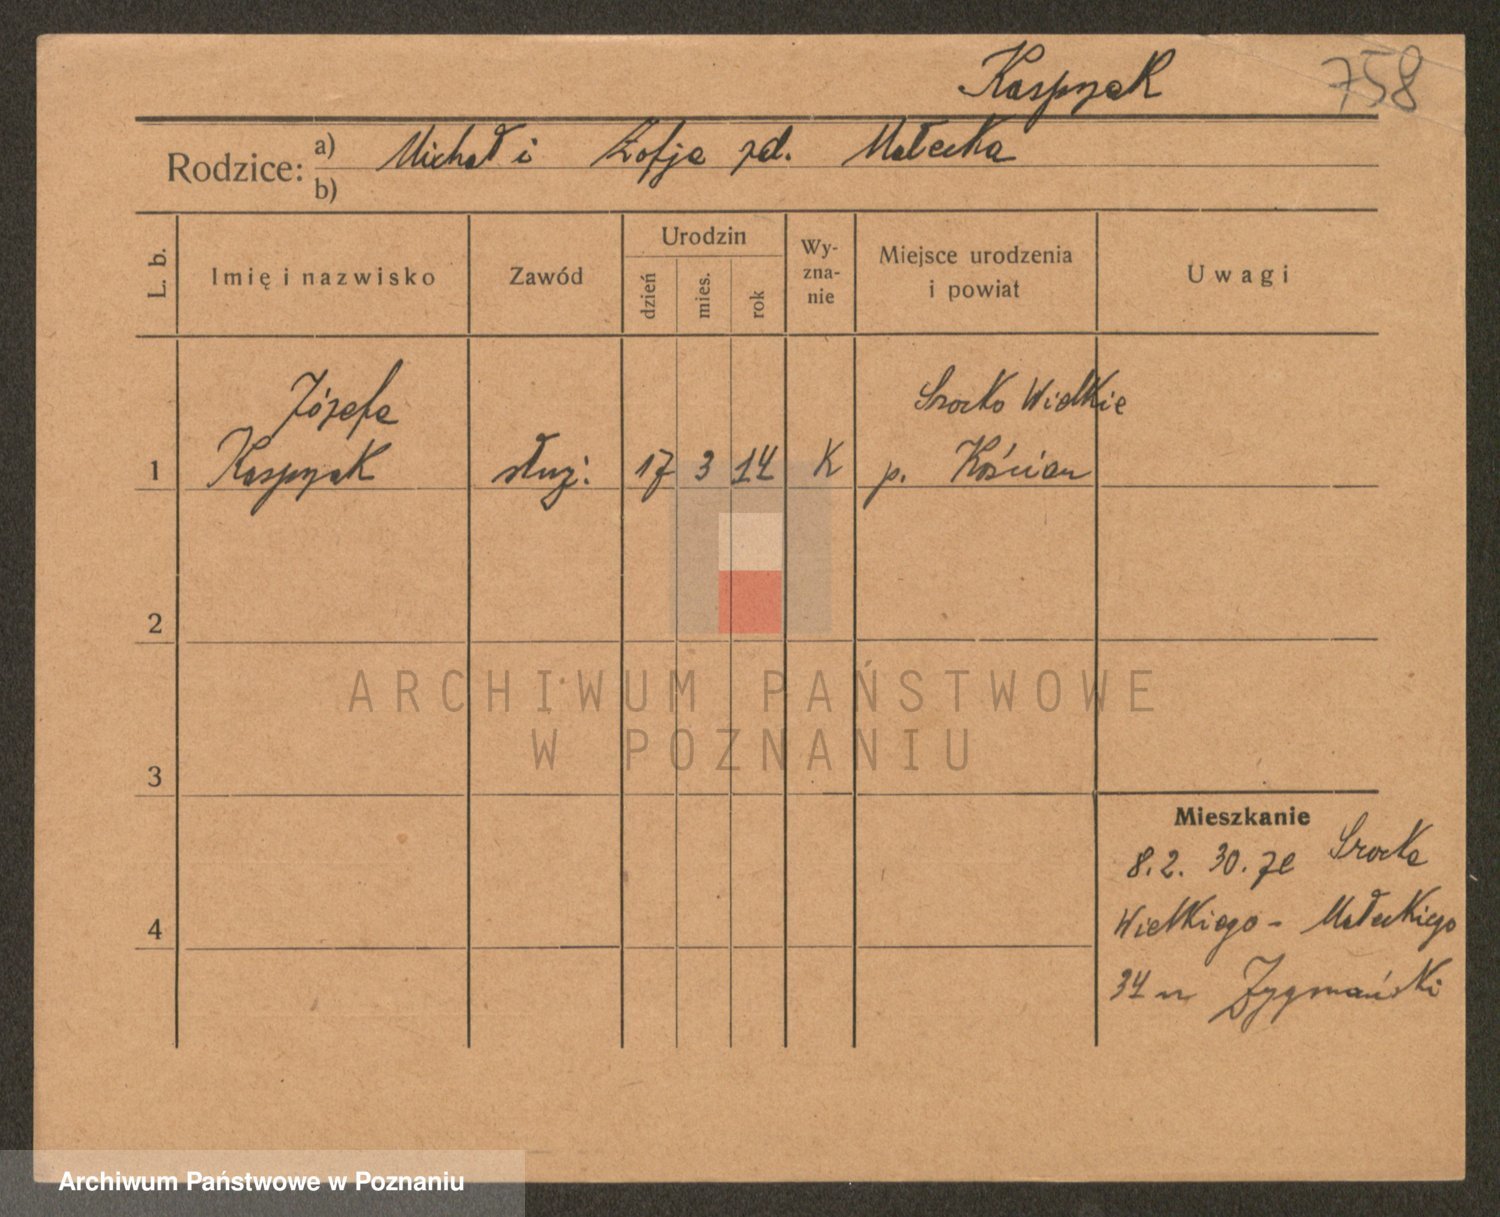 Kaspzak 758
Rodzice: a) Michał i Zofja zd. Małecka
b)
L. b. Imię i nazwisko Zawód Urodzin dzień mies. rok Wy-zna-nie Miejsce urodzenia i powiat Uwagi
Józefa Srocko Wielkie
1 Kaspzak służ: 17 3 14 K p. Kościan
2
ARCHIWUM PAŃSTWOWE
W POZNANIU
3
Mieszkanie
8.2. 30. ze Srocka
Wielkiego - Małeckiego
4
34 u Zygmański
Archiwum Państwowe w Poznaniu